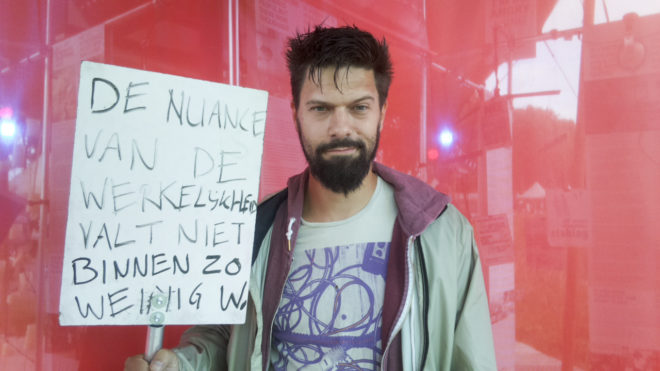 DE NUANCE
VAN DE
WERKELIJKHEID
VALT NIET
BINNEN ZO
WEINIG W.